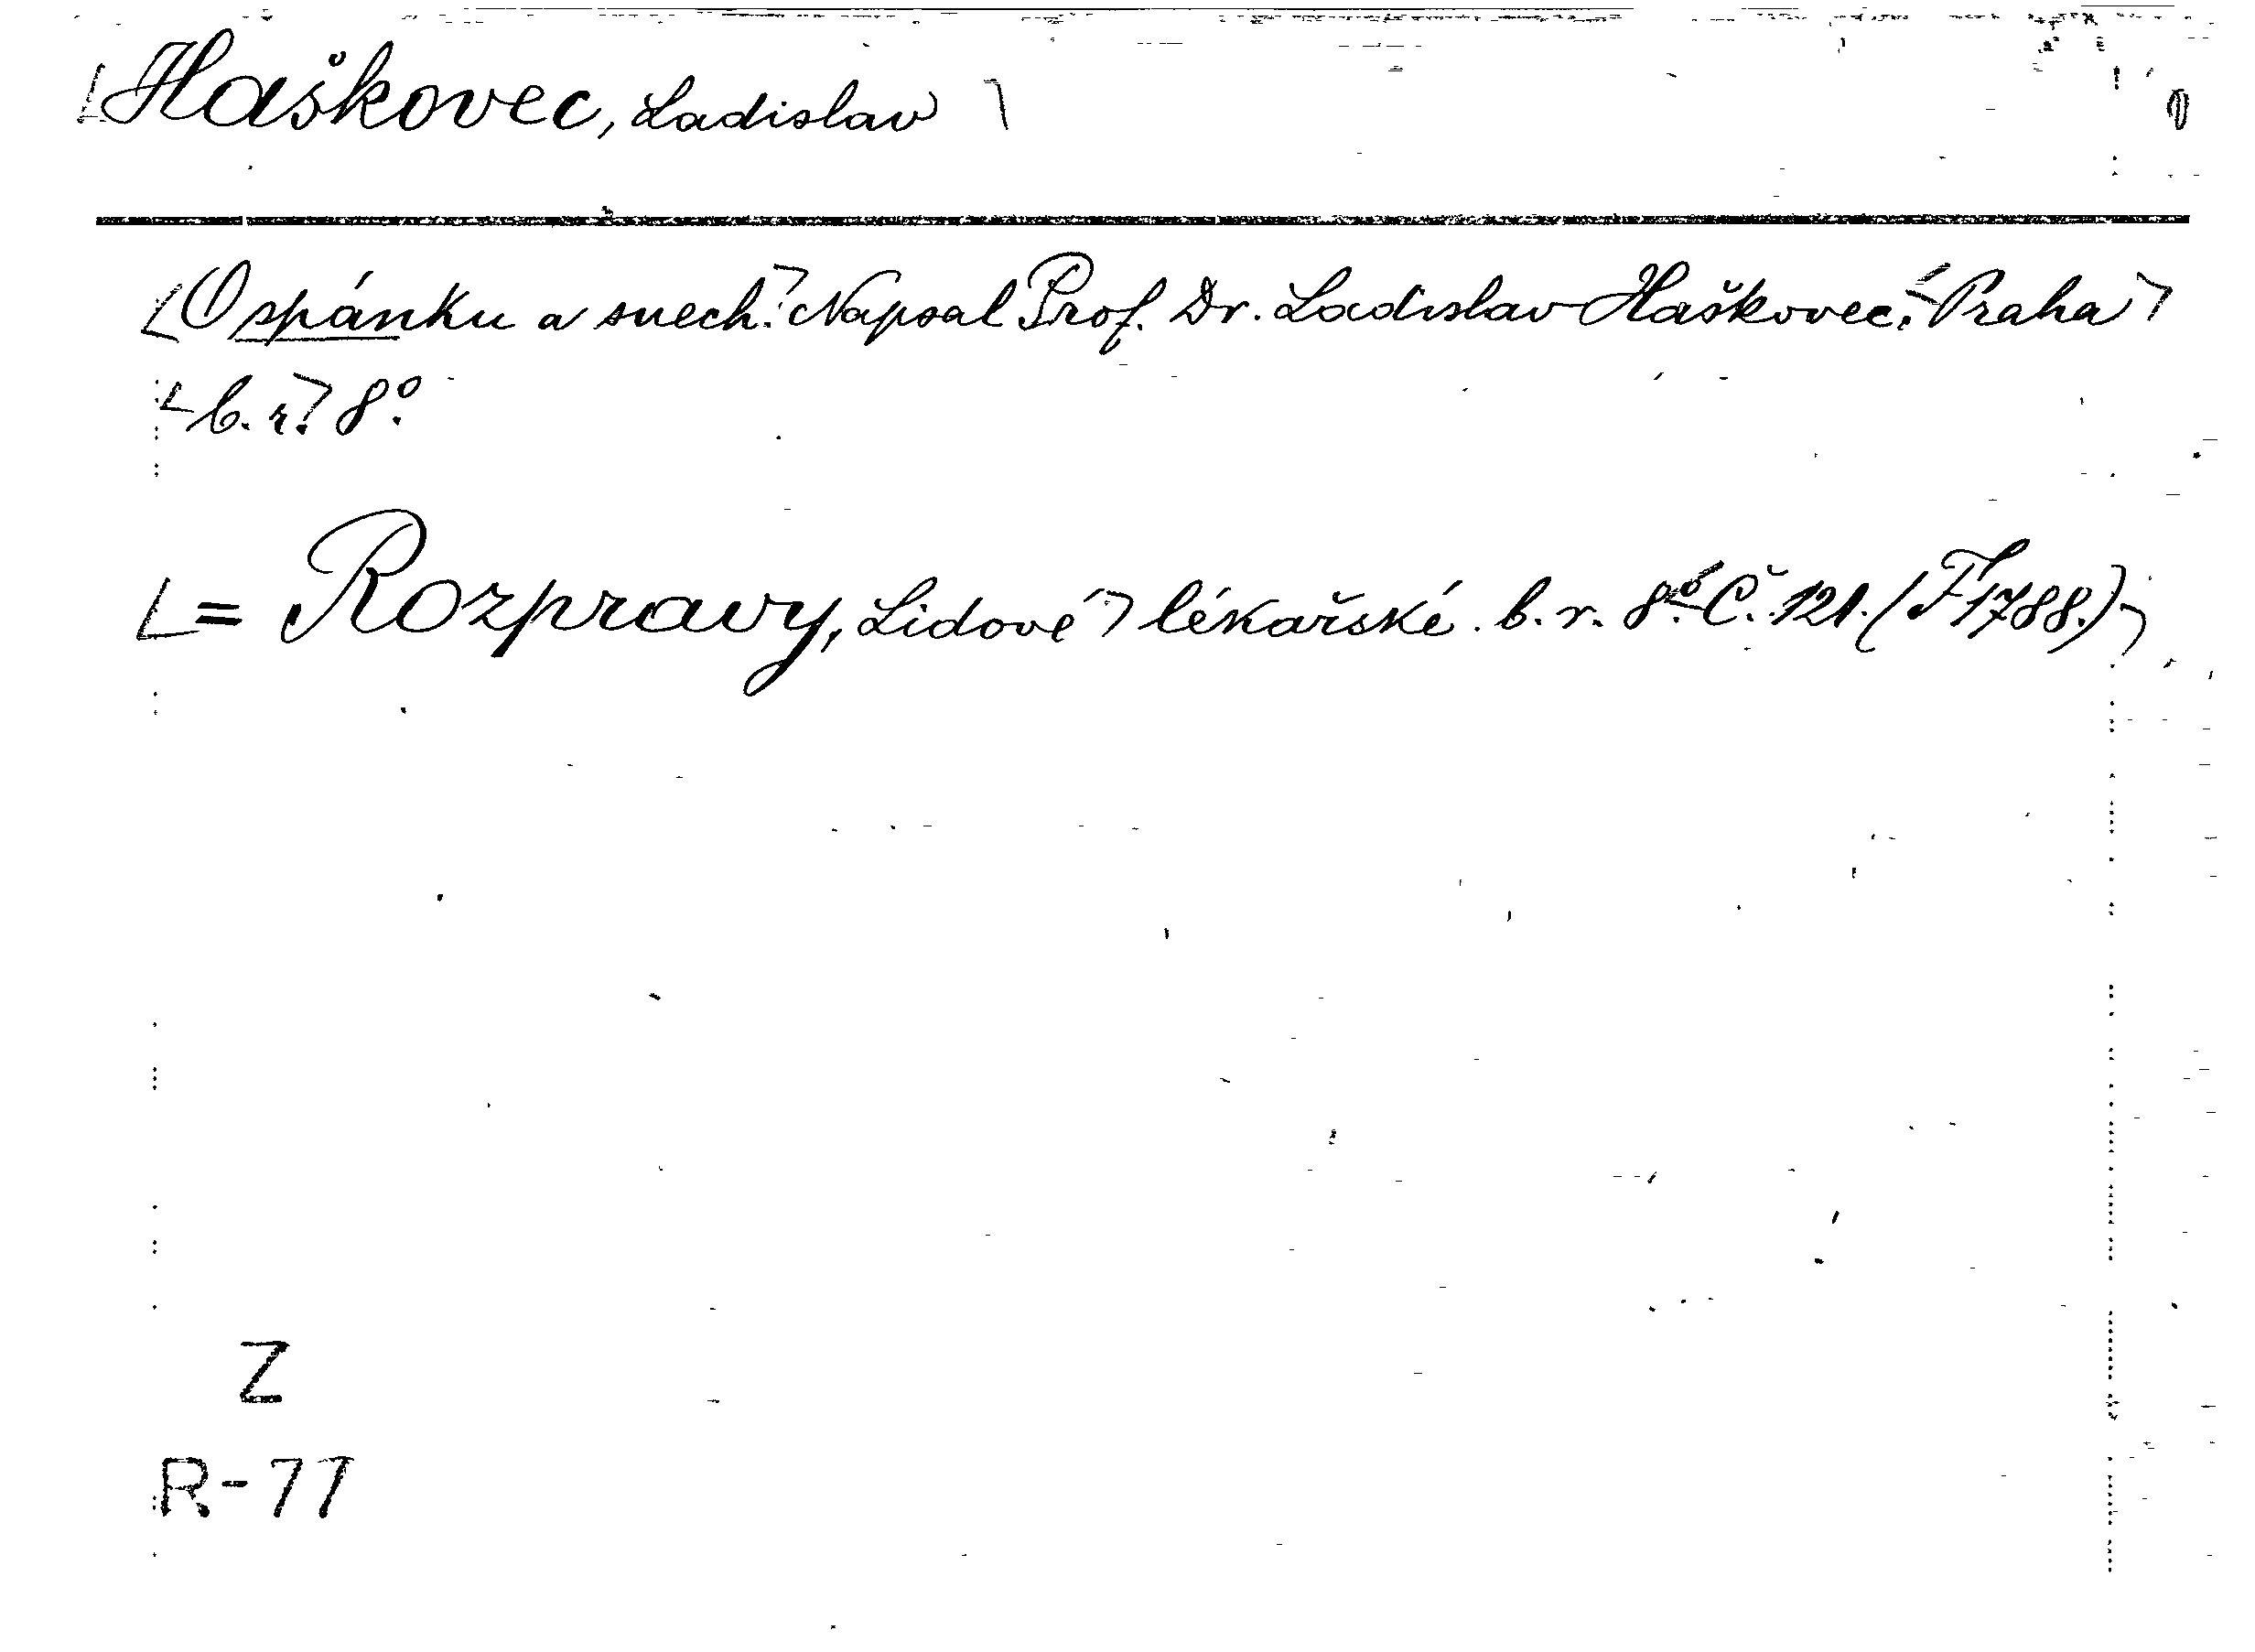 Haškovec, Ladislav
O spánku a snech. Napsal Prof. Dr. Ladislav Haškovec. Praha
b. r. 8°.
= Rozpravy, Lidové lékařské. b. r. 8°. Č. 121. (F 1788.)
Z
R-77